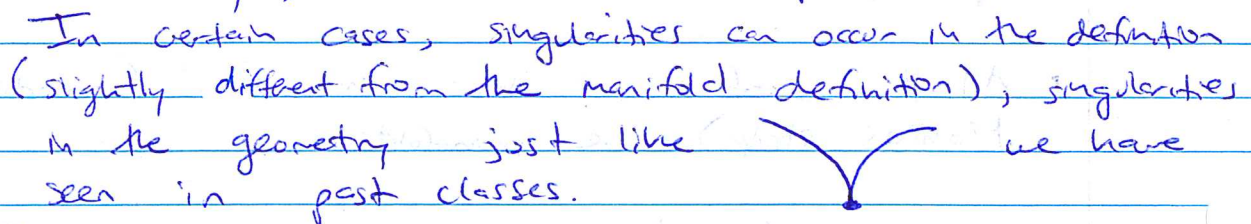 In certain cases, singularities can occur in the definition
(slightly different from the manifold definition), singularities
in the geometry just like we have
seen in past classes.